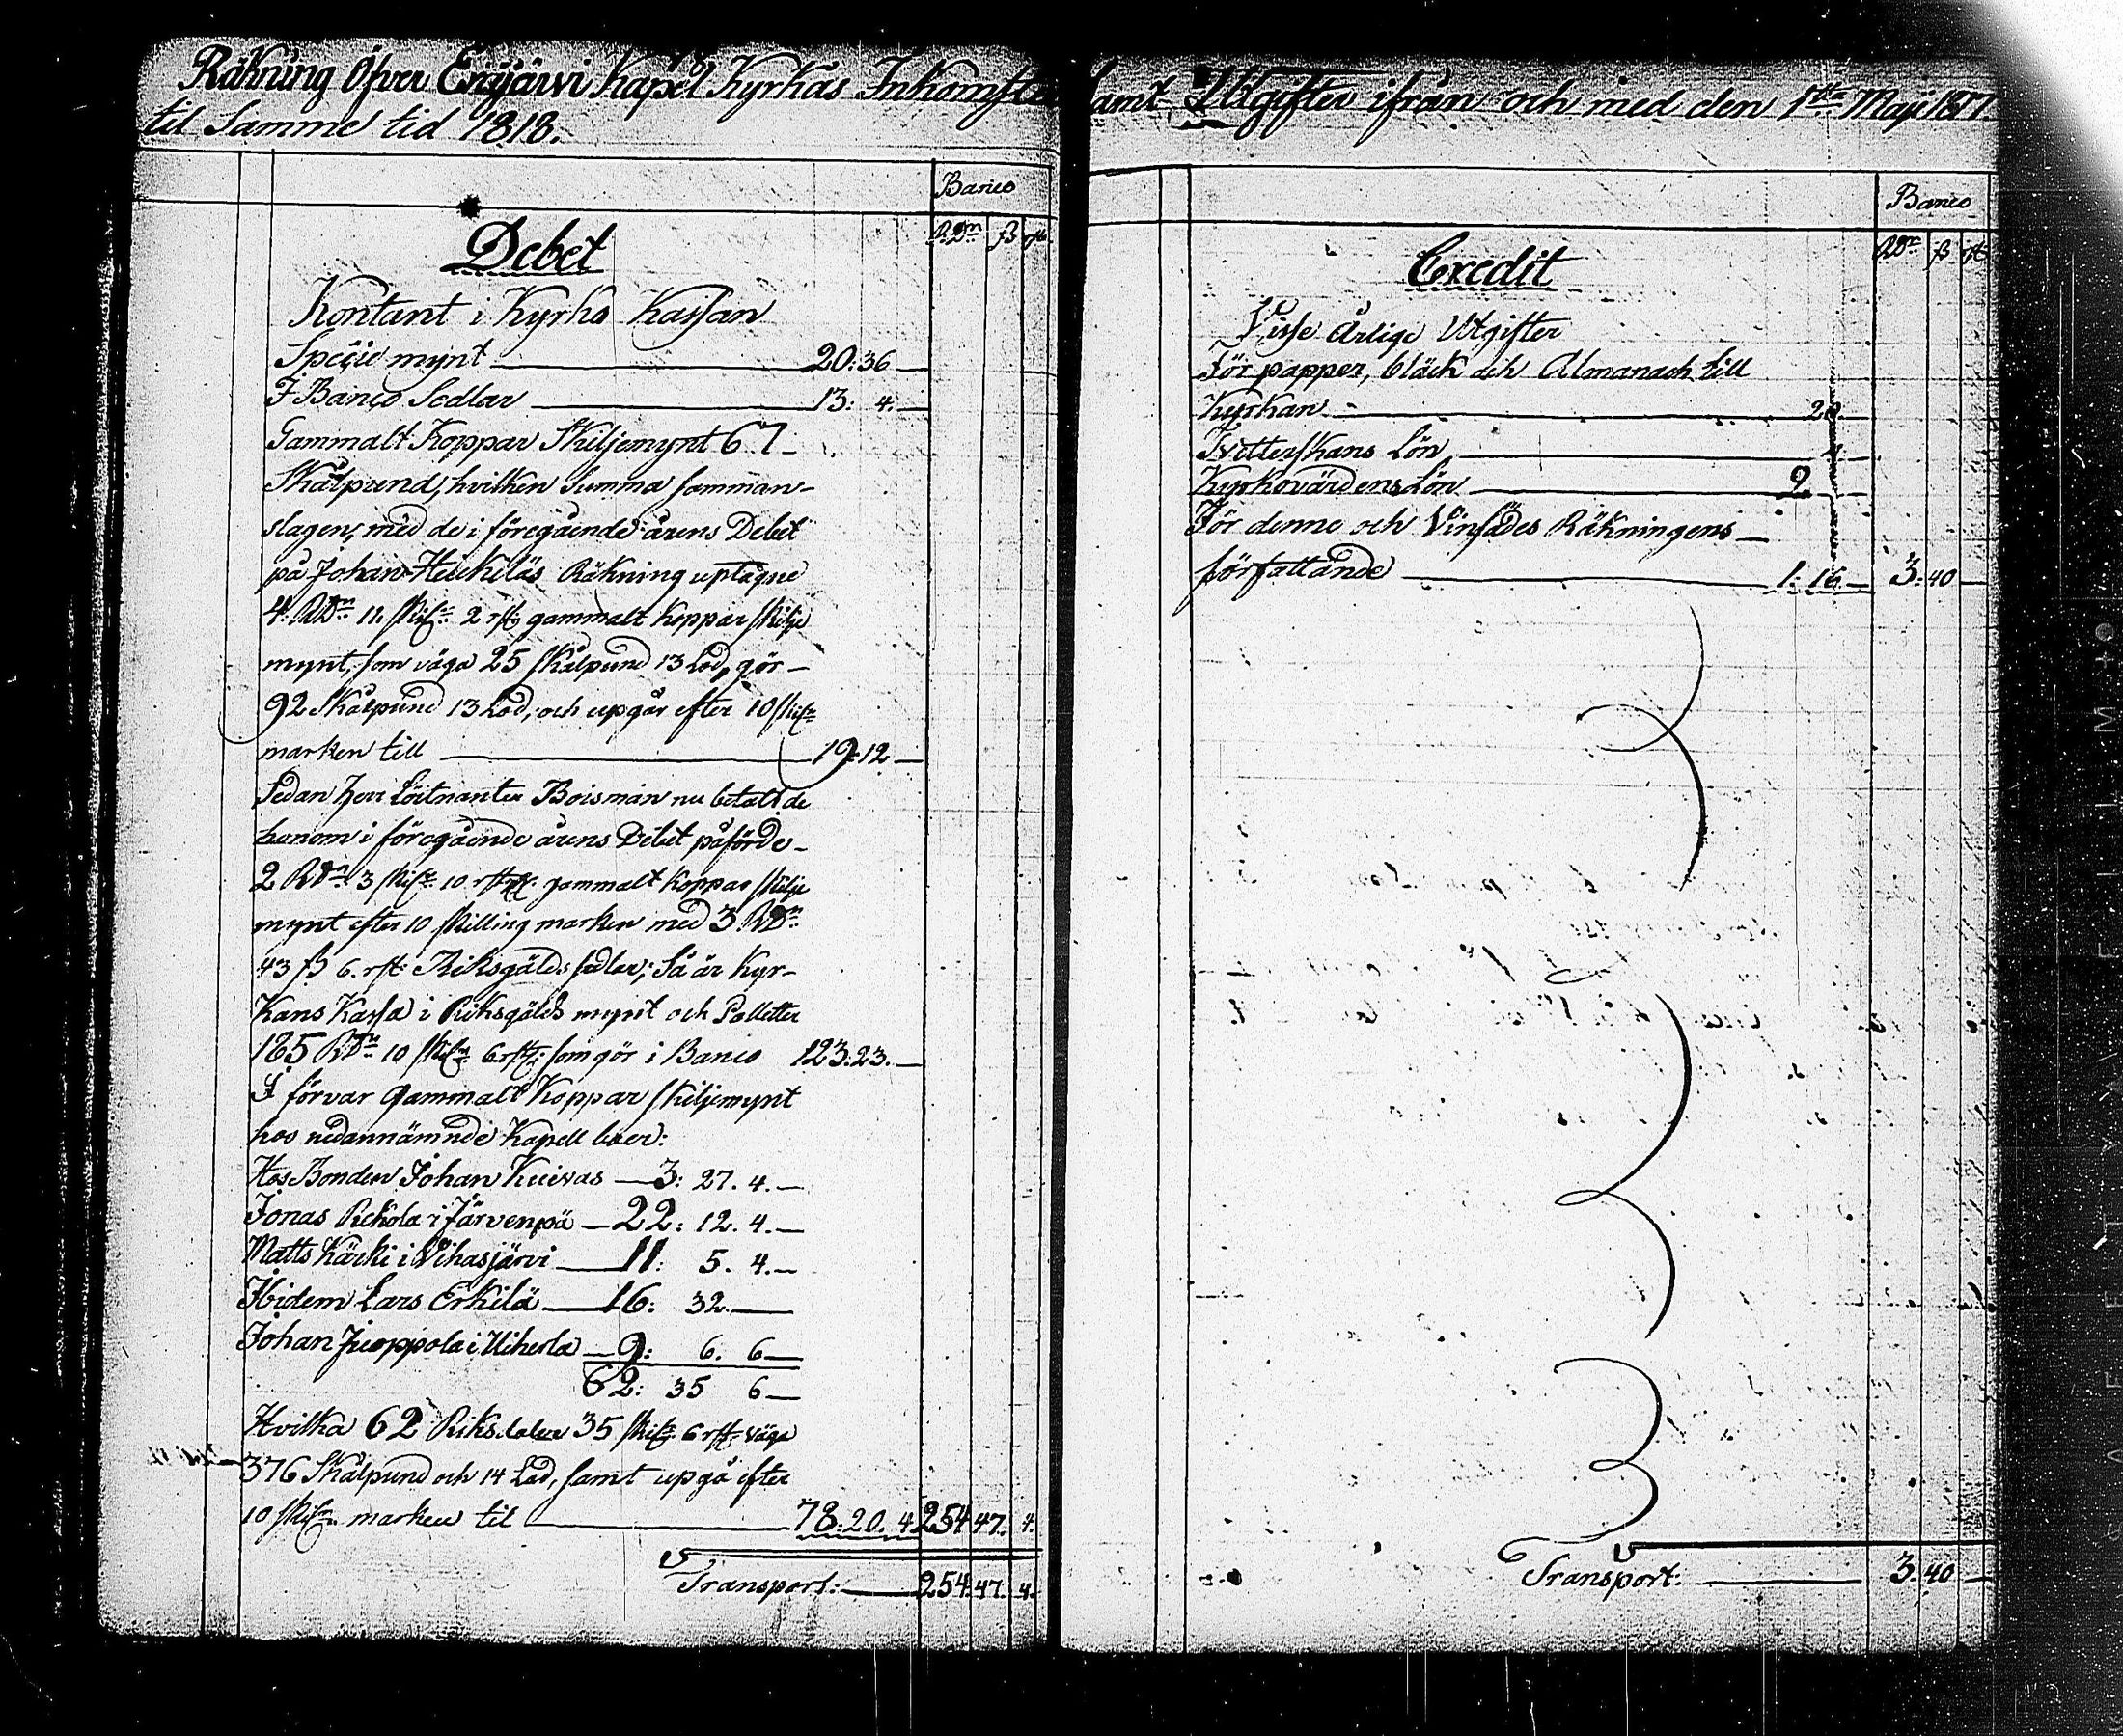 Räkning Öfver Enijärvi Kapel Kyrkas Inkomster samt Utgifter ifrån och med den 1sta Maji 1817.
til Samme tid 1818.
Banco
RDr ß rst
Debet
Kontant i Kyrko Kassan
Specie mynt 20:36
I Banco Sedlar 13: 4.
Gammalt Koppar Skiljemynt 67
Skålpund, hvilken Summa samman-
slagen, med de i föregående årens Debet
på Johan Heikiläs Räkning uptagne
4. RDr 11. Skilr 2 rst gammalt Koppar skilje
mynt, som väga 25 Skålpund 13 Lod, gör
92 Skålpund 13 Lod, och upgår efter 10 skilr
marken till 19:12
Sedan herr Löitnanten Boisman nu betalt de
honom i föregående årens Debet påförde
2 RDr 3 skilr 10 rst gammalt Koppar skilje
mynt efter 10 skilling marken med 3 RDr
43 ß 6. rst. Riksgälds sedlar; Så är Kyr-
kans Kassa i Riksgälds mynt och Polletter
185 RDr 10 skilr 6 rst: som gör i Banco 123:23.
I förvar gammalt Koppar skiljemynt
hos nedannämnde Kapell boer:
Hos Bonden Johan Kuivas 3: 27. 4.
Jonas Rekola i Järvenpä 22: 12. 4.
Matts Kärki i Vihasjärvi 11: 5. 4.
Ibidem Lars Erkilä 16: 32.
Johan Juoppola i 9: 6. 6
62: 35 6
Hvilka 62 Riksdaler 35 skilr 6 rst väga
376 Skålpund och 14 Lod, samt upgå efter
10 skilr marken til 78:20. 4 254 47. 4.
Transport: 254 47. 4.
Banco
RDr ß rst
Credit
Visse Årlige Utgifter
För papper, bläck och Almanach till
Kyrkan 20.
Tvetterskans Lön
Kyrkovärdens Lön 2
För denne och Vinsädes Räkningens
författande 1: 16 3: 40
Transport: 3: 40